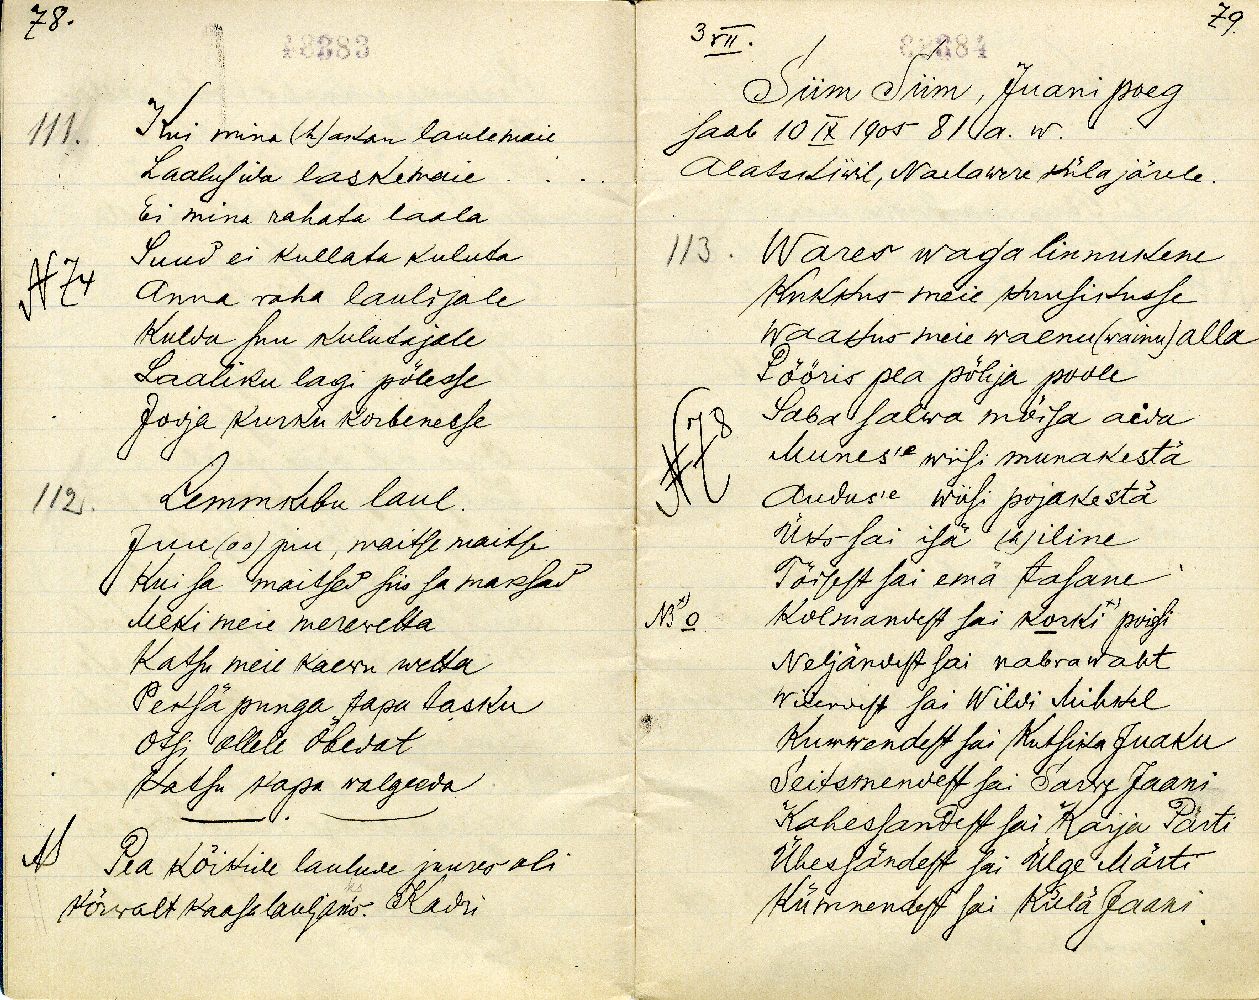 78.
48383
111.
Kui mina (h)akan laulemaie
Laalusida laskemaie . . . .
Ei mina rahata laala
Suud ei kullata kuluta
N 74
Anna raha laulijale
Kulda suu kulutajale
Laaliku lagi pölesse
Jooja kurku korbenesse
112.
Lemmkibu laul.
Juu (oo) juu, maitse maitse
Kui sa maitsed siis sa maksad
Meki meie merewetta
Katsu meie kaewu wetta
Peksä punga tapa tasku
Otsi ollele öbedat
Katsu kapa walgeeda
N
Pea köikide laulude juures oli
körwalt kaasalauljans. Kadri
79.
3 VII.
Siim Siim, Juani poeg
saab 10 IX 1905 81 a. w.
Alatskiwil, Naelawere küla järele.
113.
Wares waga linnukene
Kukkus meie kuusikusse
Waatus meie waenu (wainu) alla
Pööris pea pöhja poole
N 78
Saba salwa möisa aeda
Munes'e wiisi munakestä
Audus'e wiisi pojakestä
Üks sai isä (h)iline
Töisest sai emä tasane
NB x) o
Kolmandest sai korki x) poisi
Neljändest sai nabrawaht
Wiiendest sai Wildi Mihkel
Kuwwendest sai Kutsika Juaku
Seitsmendest sai Sarwe Jaani
Kahessandest sai Karja Pärti
Ühessändest sai Ülge Märti
Kümnendest sai Külä Jaani.